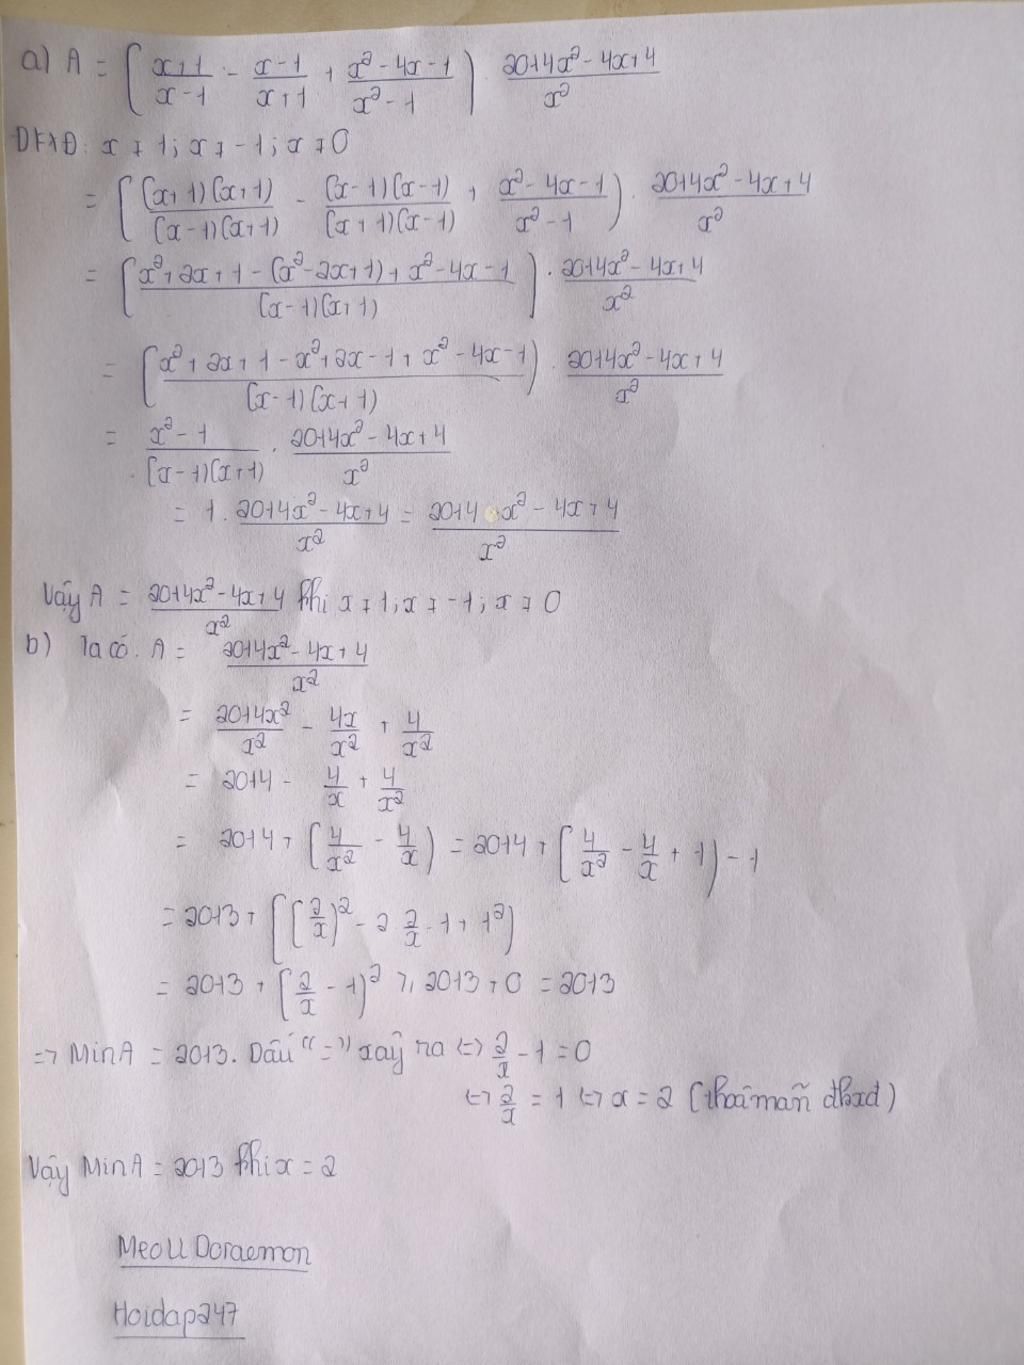 a) A = ( (x+1)/(x-1) - (x-1)/(x+1) + (x²-4x-1)/(x²-1) ) . (2014x²-4x+4)/x²
ĐKXĐ: x ≠ 1; x ≠ -1; x ≠ 0
= ( (x+1)(x+1)/(x-1)(x+1) - (x-1)(x-1)/(x+1)(x-1) + (x²-4x-1)/(x²-1) ) . (2014x²-4x+4)/x²
= ( (x²+2x+1-(x²-2x+1)+x²-4x-1)/(x-1)(x+1) ) . (2014x²-4x+4)/x²
= ( (x²+2x+1-x²+2x-1+x²-4x-1)/(x-1)(x+1) ) . (2014x²-4x+4)/x²
= (x²-1)/(x-1)(x+1) . (2014x²-4x+4)/x²
= 1 . (2014x²-4x+4)/x² = (2014x²-4x+4)/x²
Vậy A = (2014x²-4x+4)/x² khi x ≠ 1; x ≠ -1; x ≠ 0
b) Ta có. A = (2014x²-4x+4)/x²
= 2014x²/x² - 4x/x² + 4/x²
= 2014 - 4/x + 4/x²
= 2014 + ( 4/x² - 4/x ) = 2014 + ( 4/x² - 4/x + 1 ) - 1
= 2013 + ( (2/x)² - 2 . 2/x . 1 + 1² )
= 2013 + ( 2/x - 1 )² ≥ 2013 + 0 = 2013
=> Min A = 2013. Dấu "=" xảy ra <=> 2/x - 1 = 0
<=> 2/x = 1 <=> x = 2 (thoả mãn đkxđ)
Vậy Min A = 2013 khi x = 2
MeoU Doraemon
Hoidap247